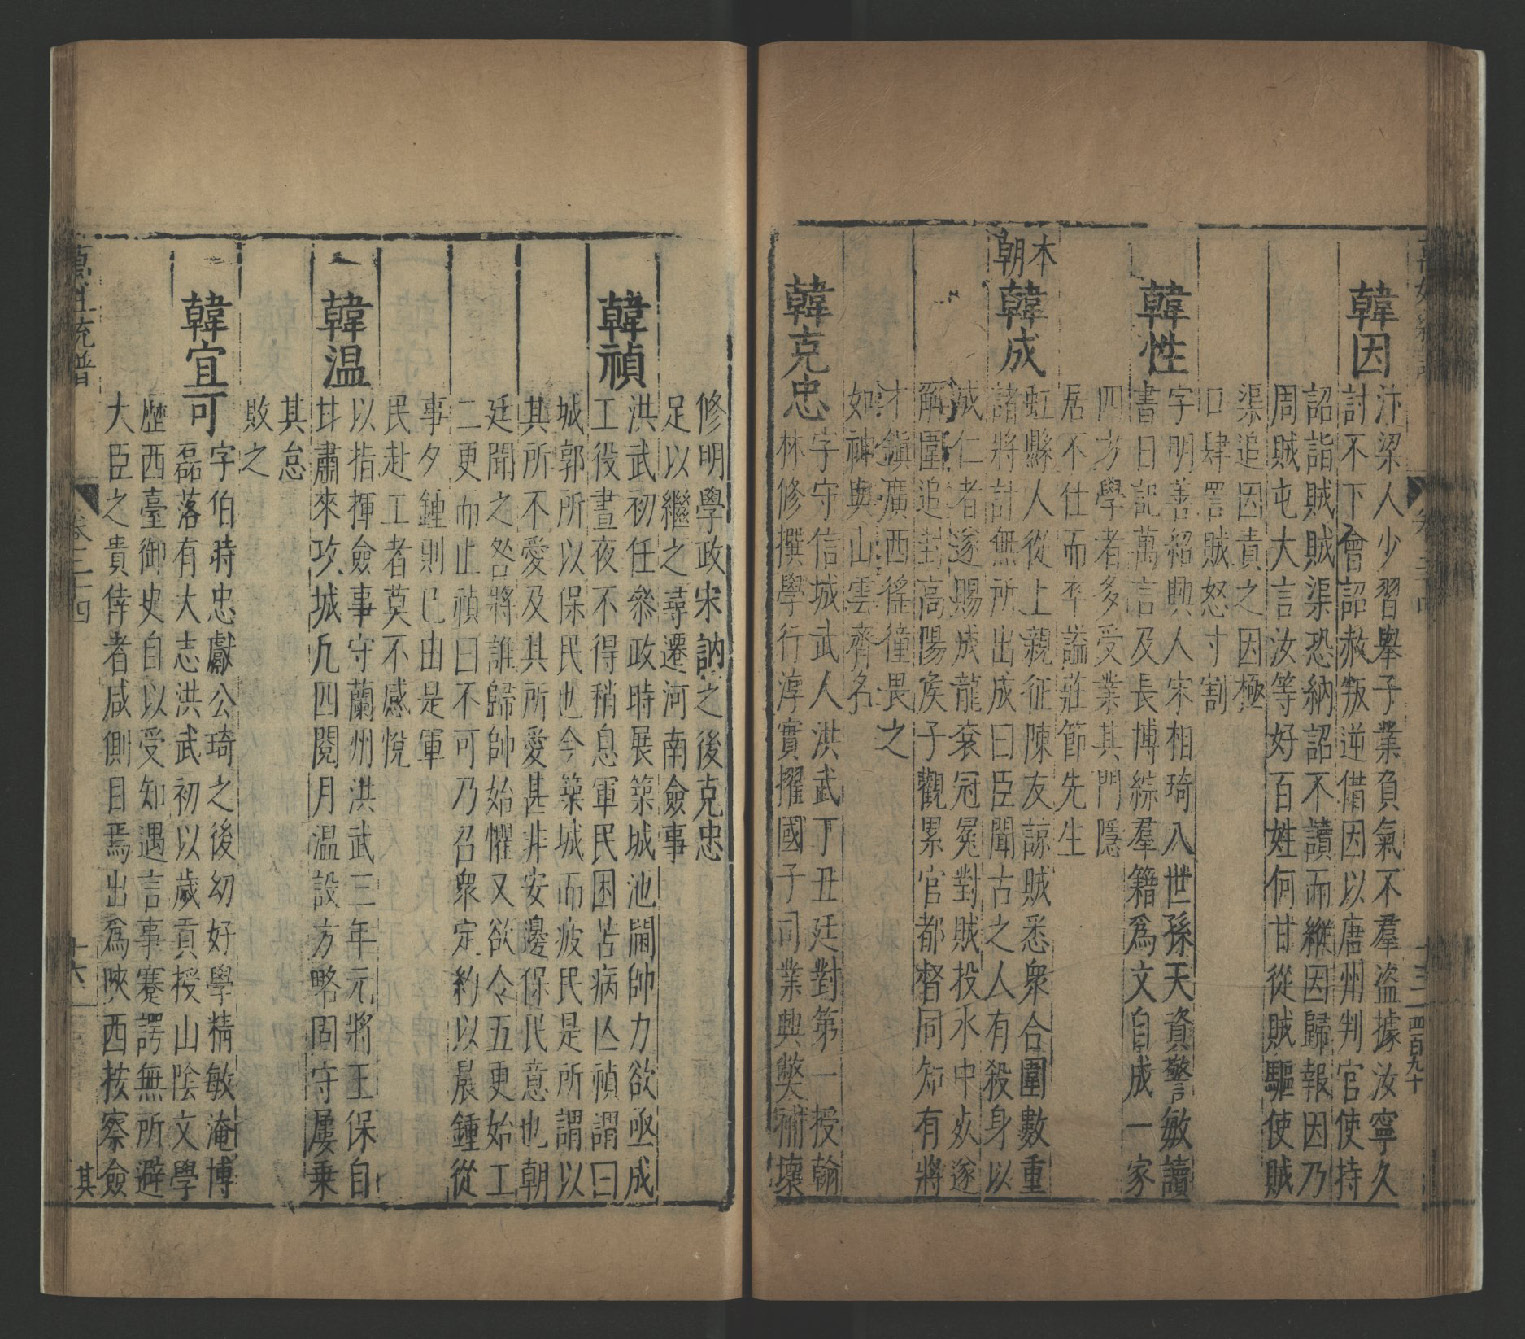 韓因
汴梁人少習舉子業負氣不羣盜據汝寧久
討不下會詔赦叛逆借因以唐州判官使持
詔詣賊賊渠恐納詔不讀而縱因歸報因乃
周賊屯大言汝等好百姓何甘從賊驅使賊
渠追因責之因極
口肆詈賊怒寸割
韓性
字明善紹興人宋相琦八世孫天資警敏讀
書日記萬言及長博綜羣籍爲文自成一家
四方學者多受業其門隱
居不仕而卒諡莊節先生
本朝
韓成
虹縣人從上親征陳友諒賊悉衆合圍數重
諸將計無所出成曰臣聞古之人有殺身以
成仁者遂賜成龍袞冠冕對賊投水中死遂
解圍追封高陽侯子觀累官都督同知有將
才鎮廣西徭獞畏之
如神與山雲齊名
韓克忠
字守信城武人洪武丁丑廷對第一授翰
林修撰學行淳實擢國子司業興獘補壞
修明學政宋訥之後克忠
足以繼之尋遷河南僉事
韓禎
洪武初任叅政時展築城池閫帥力欲亟成
工役晝夜不得稍息軍民困苦病亾禎謂曰
城郭所以保民也今築城而疲民是所謂以
其所不愛及其所愛甚非安邊保民意也朝
廷聞之咎將誰歸帥始懼又欲令五更始工
二更而止禎曰不可乃召衆定約以晨鍾從
事夕鍾則已由是軍
民赴工者莫不感悅
韓温
以指揮僉事守蘭州洪武三年元將王保自
甘肅來攻城凡四閱月温設方略固守屢乗
其怠
敗之
韓宜可
字伯時忠獻公琦之後幼好學精敏淹博
磊落有大志洪武初以歲貢授山陰文學
歷西臺御史自以受知遇言事蹇諤無所避
大臣之貴倖者咸側目焉出爲陜西按察僉
其
萬姓統譜
卷二十四
十六
十三
四百九十